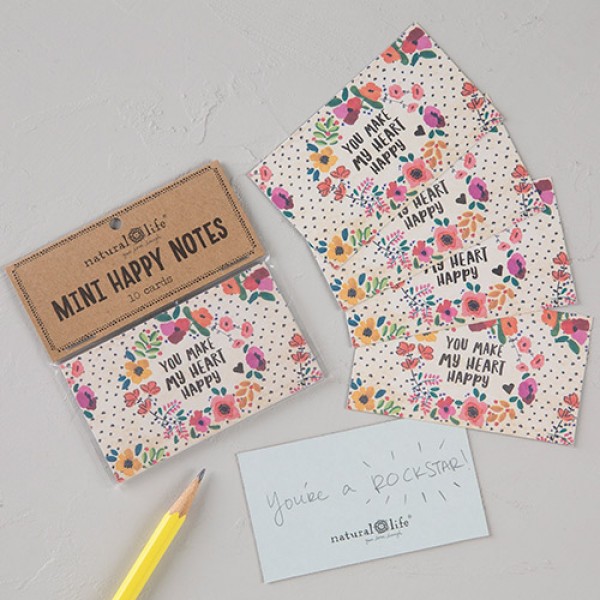 natural life®
MINI HAPPY NOTES
10 cards
YOU MAKE
MY HEART
HAPPY
YOU MAKE
MY HEART
HAPPY
MY HEART
HAPPY
MY HEART
HAPPY
YOU MAKE
MY HEART
HAPPY
You're a ROCKSTAR!
natural life®